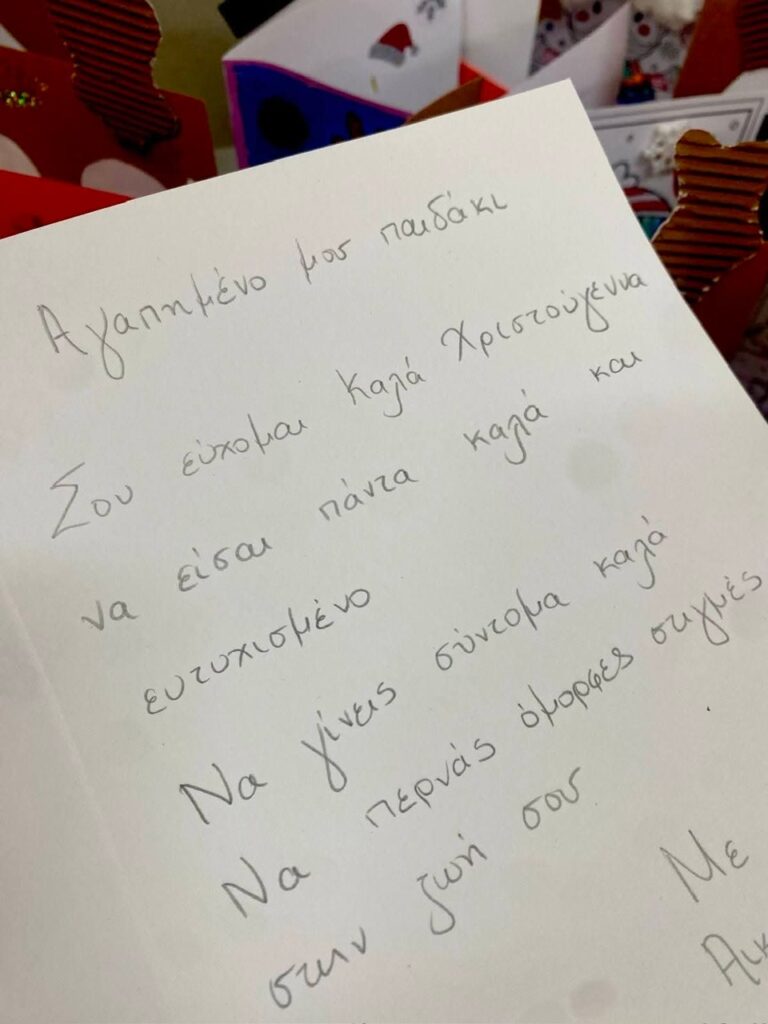 Αγαπημένο μου παιδάκι
Σου εύχομαι καλά Χριστούγεννα
να είσαι πάντα καλά και
ευτυχισμένο
Να γίνεις σύντομα καλά
Να περνάς όμορφες στιγμές
στην ζωή σου
Με